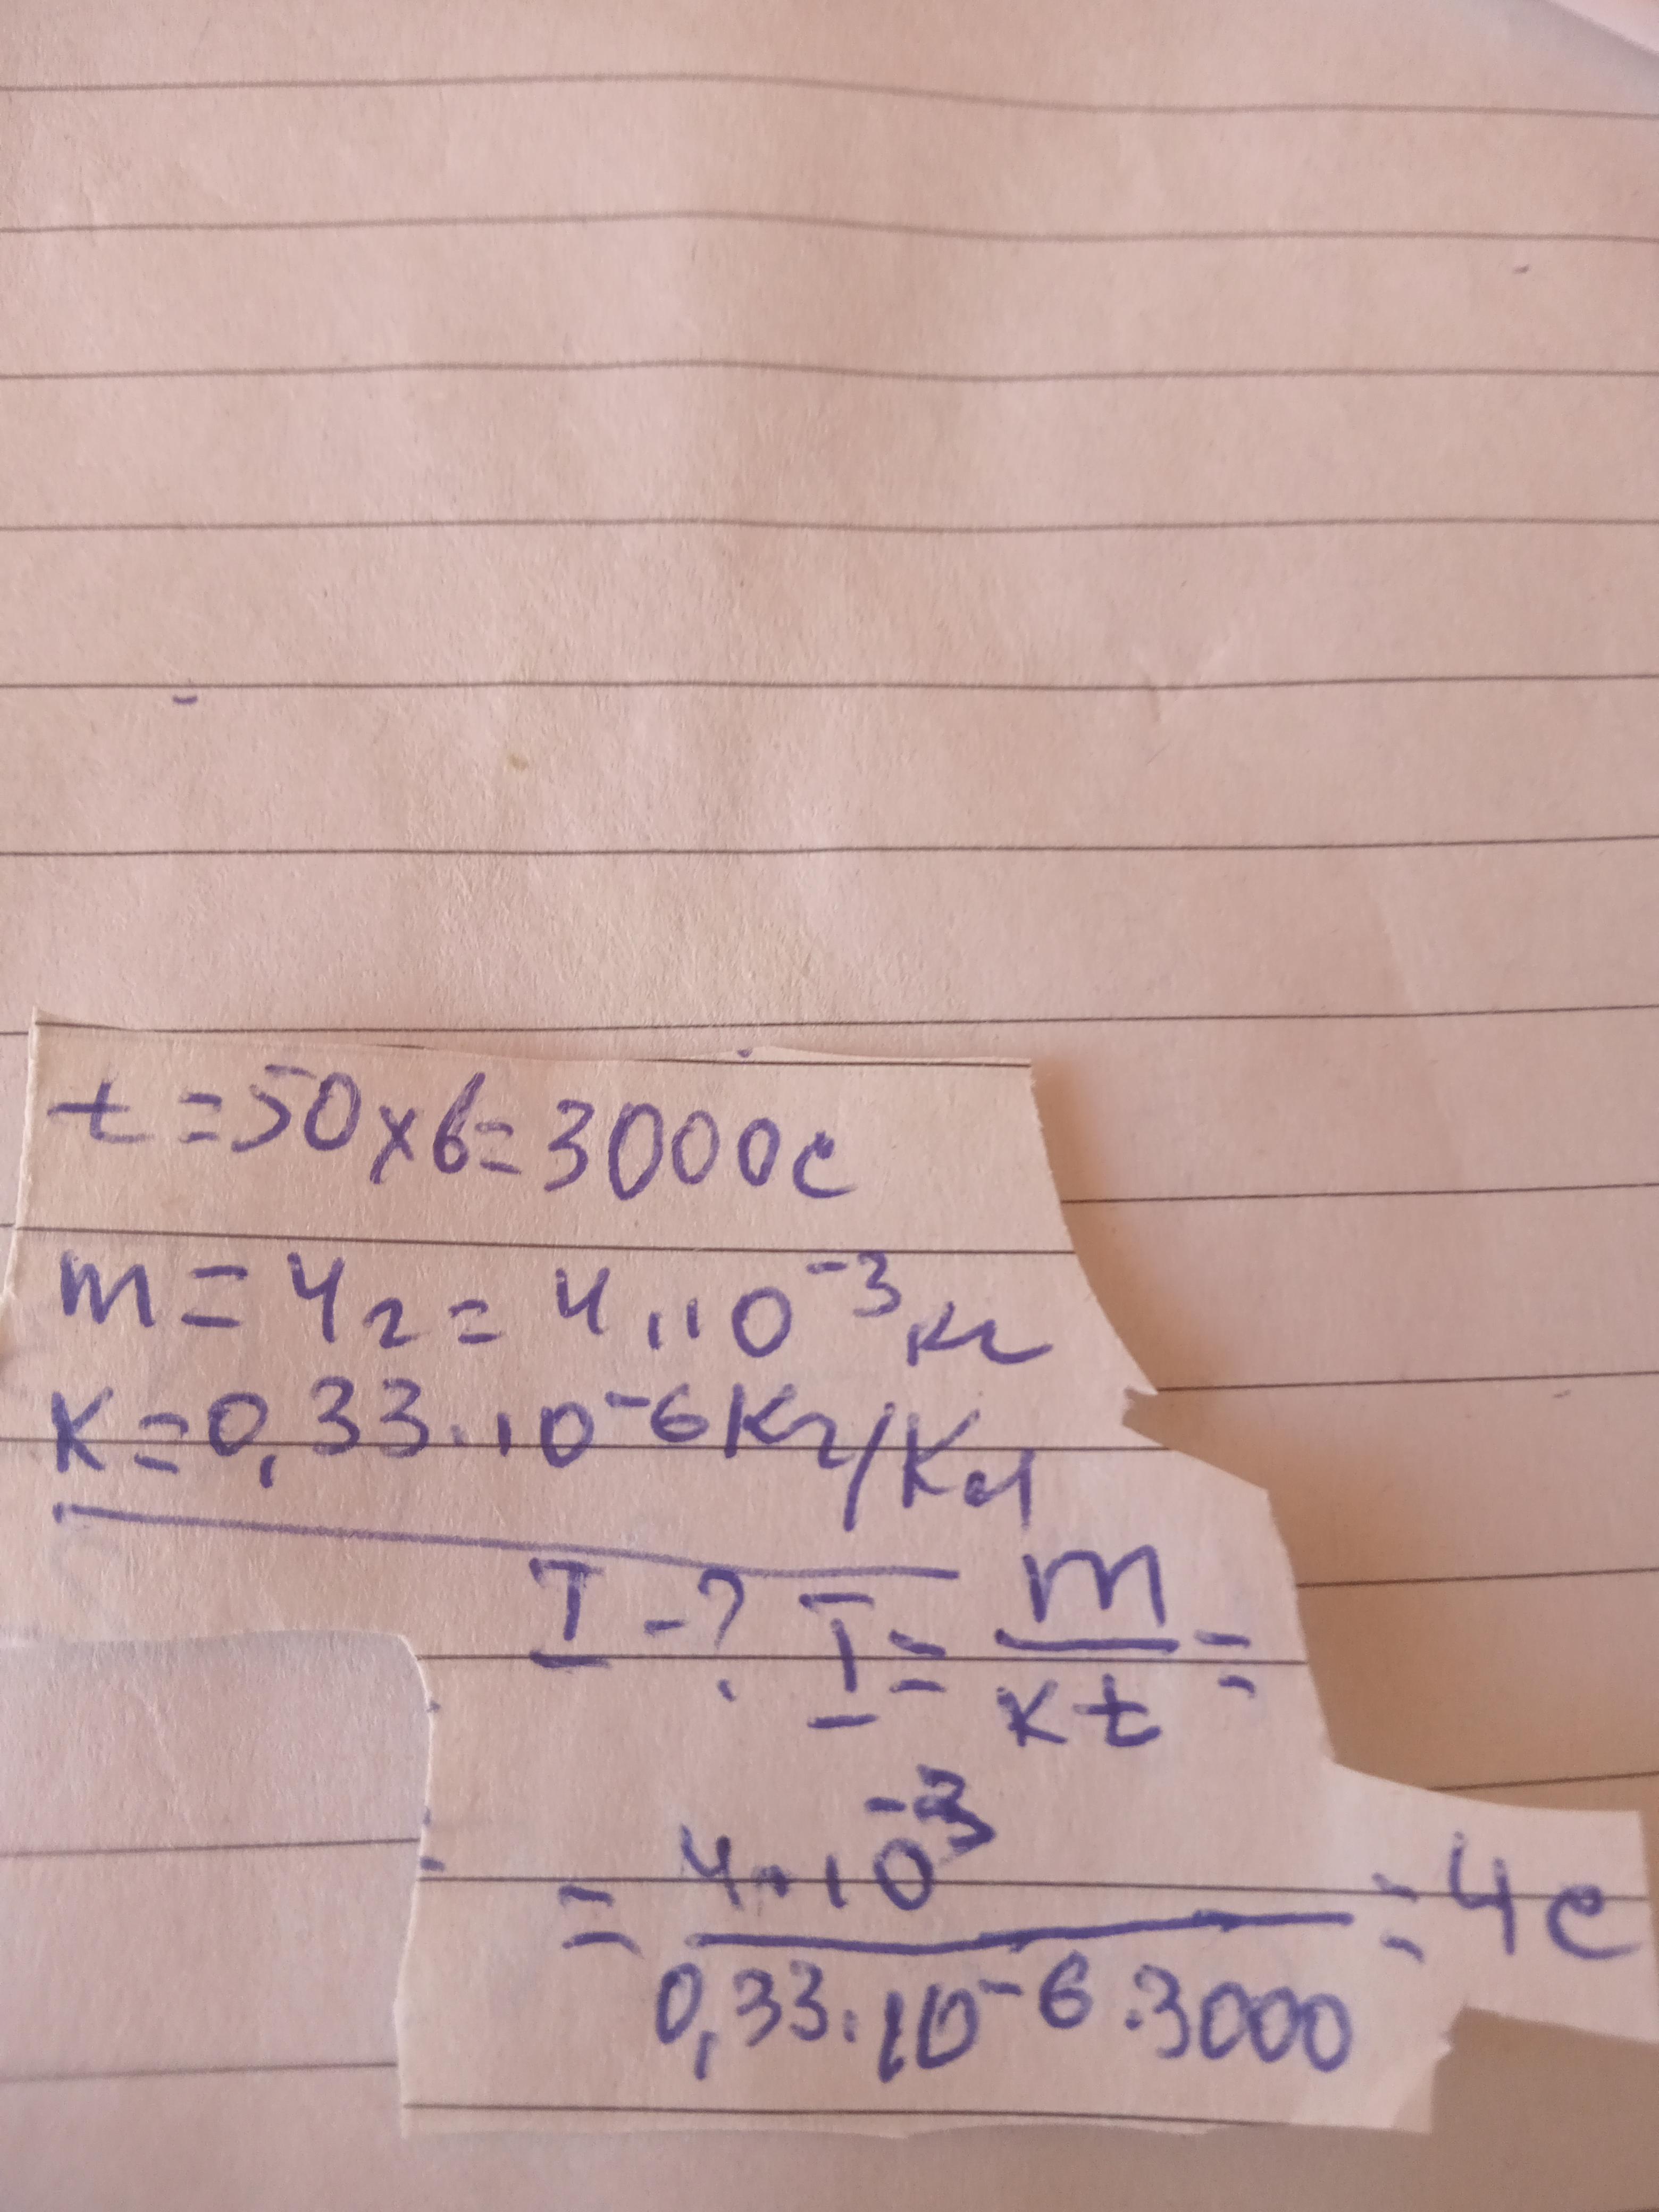 t = 50 x 6 = 3000 с
m = 4 г = 4 · 10⁻³ кг
K = 0,33 · 10⁻⁶ Кг/Кл
I - ? I = m/kt =
= 4 · 10⁻³ / 0,33 · 10⁻⁶ · 3000 = 4 с